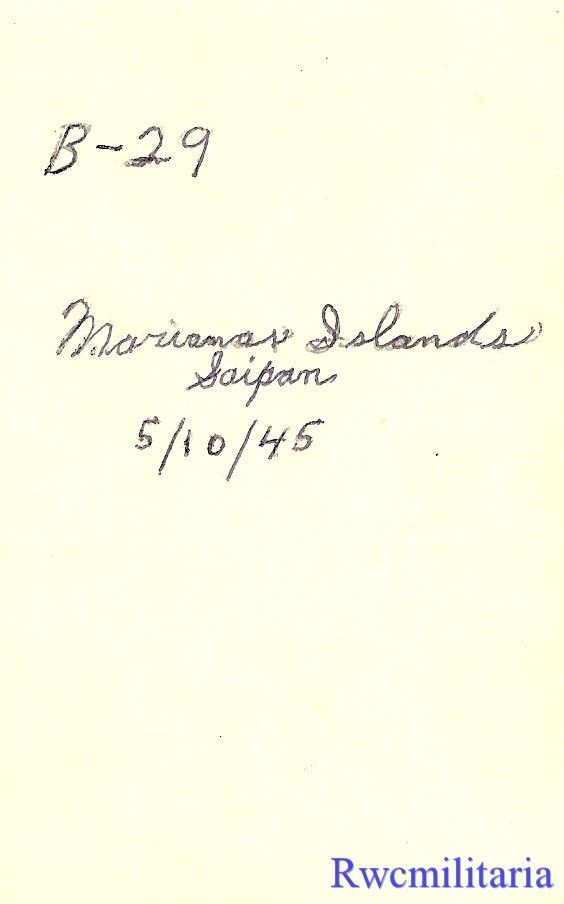 B-29
Marianas Islands
Saipan
5/10/45
Rwcmilitaria